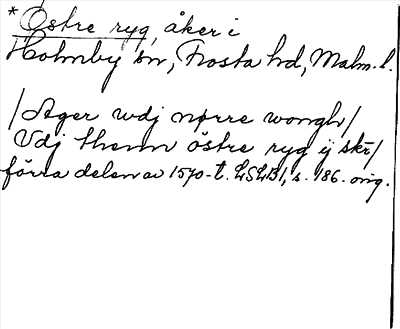 * Östre ryg, åker i
Holmby sn, Frosta hd, Malm. l.
/Ager wdj nørre wongh/
Vdj thenn östre ryg ij skr/
förra delen av 1570-t. LSLB1, s. 186. orig.